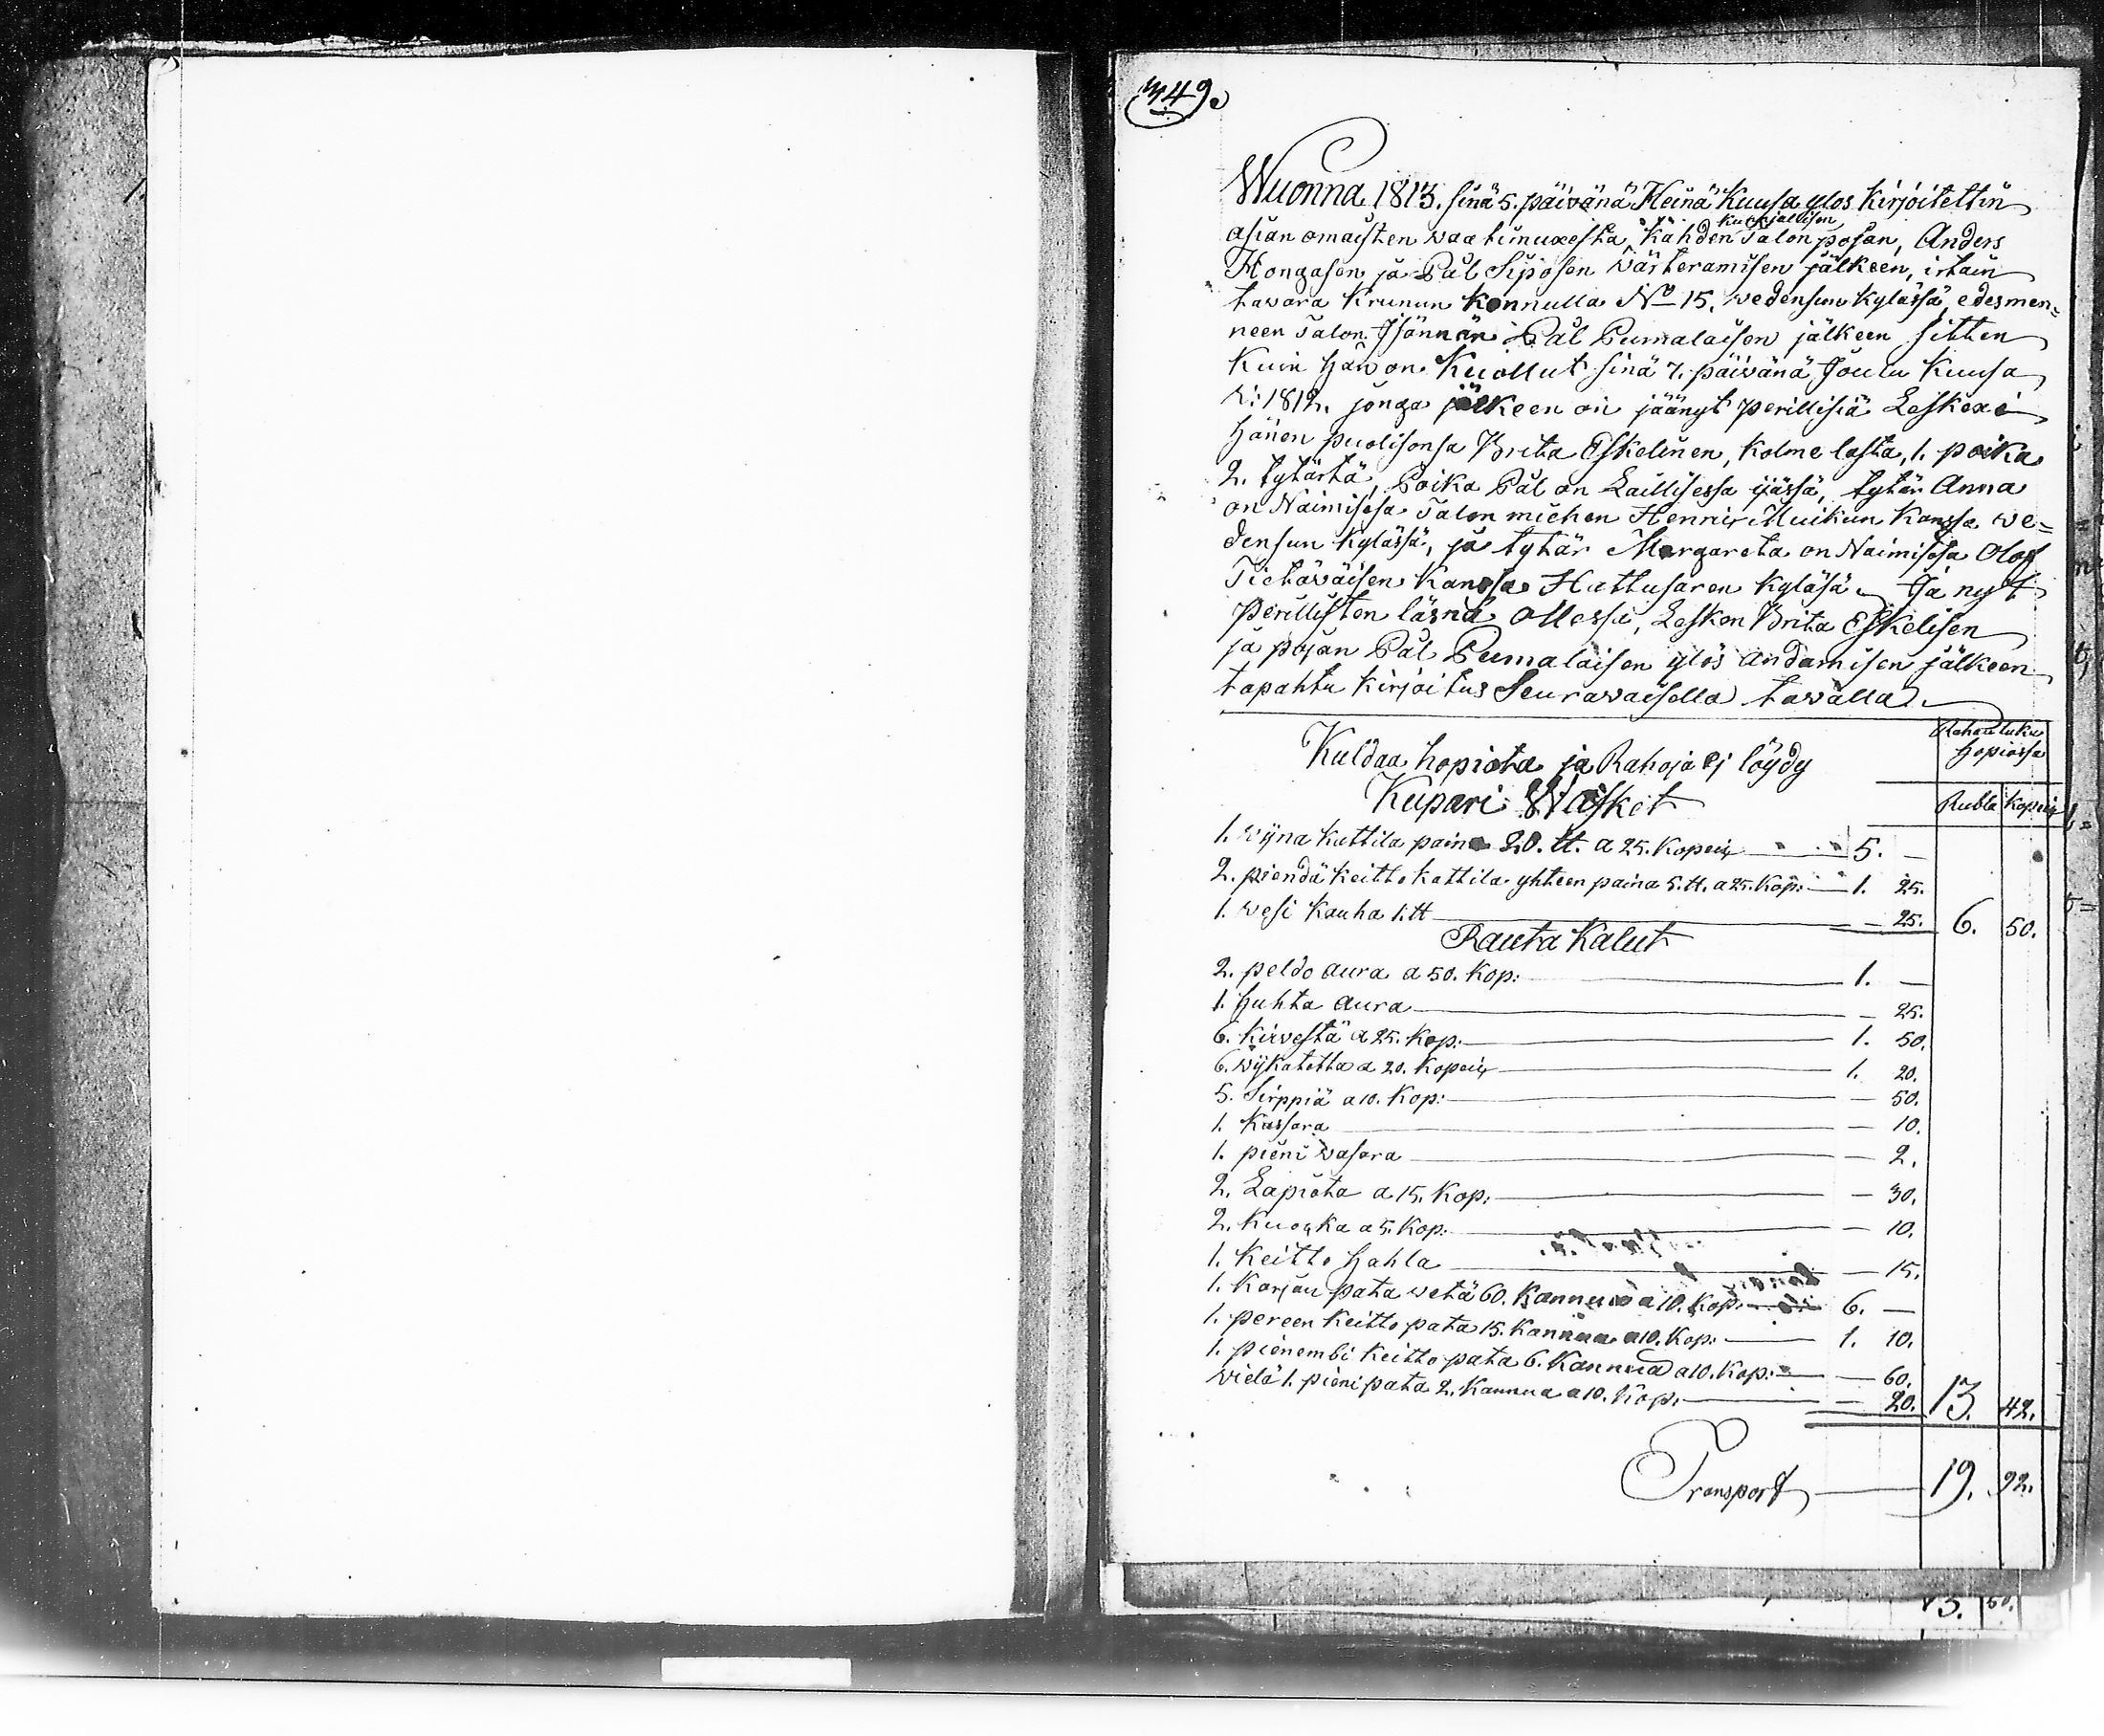 349.
Wuonna 1813. sinä 5. päivänä Heinä Kuusa ylos Kirjoitettin
asian omaisten waatimuxesta, Kahden kunnjallisen Talon pojan, Anders
Hongasen ja Pål Siposen Wärteramisen jälkeen, irtain
tawara Krunun Konnulla No 15. wedensun Kylässä, edesmen=
neen Talon Isännän Pål Pumalaisen jälkeen sitten
Kuin hän on Kuollut sinä 7. päivänä Joulu Kuusa
v: 1812. jonga jälkeen on jäänyt perillisiä Leskexi
hänen puolisonsa Brita Eskelinen, Kolme lasta, 1. poika
2. tytärtä, Poika Pål on Laillisessa ijässä, tytär Anna
on Naimisesa Talon miehen Henrir Muikun Kanssa we=
densun Kylässä, ja tytär Margareta on Naimisesa Olof
Tietäwäisen Kanssa Hattusaren Kyläsä. Ja nyt
perillisten läsnä ollessa, Lesken Brita Eskelisen
ja pojan Pål Pumalaisen ylös andamisen jälkeen
tapahtu Kirjoitus Seurawaisella tawalla
Rahan luku
hopiassa
Kuldaa hopiata ja Rahoja ej löydy
Kupari Wasket
Rubla Kopeix
1. wijna kattila paina 20. tt. a 25. Kopeix 5. —
2. piendä keitto kattila yhteen paina 5. tt. a 25. Kop: 1. 25.
1. wesi Kauha 1. tt — 25. 6. 50.
Rauta Kalut
2. peldo aura a 50. Kop: 1. —
1. huhta aura — 25.
6. kirvestä a 25. Kop: 1. 50.
6. wijkatetta a 20. Kopeix 1. 20.
5. Sirppiä a 10. Kop: — 50.
1. Kassara — 10.
1. pieni wasara — 2.
2. Lapiota a 15. Kop: — 30.
2. Kuokka a 5. Kop: — 10.
1. Keitto hahla — 15.
1. Karjan pata wetä 60. Kannua a 10. Kop: 6. —
1. pereen Keitto pata 15. Kannua a 10. Kop: 1. 10.
1. pienembi Keitto pata 6. Kannua a 10. Kop: — 60.
wielä 1. pieni pata 2. Kannua a 10. Kop: — 20. 13. 42.
Transport 19. 92.